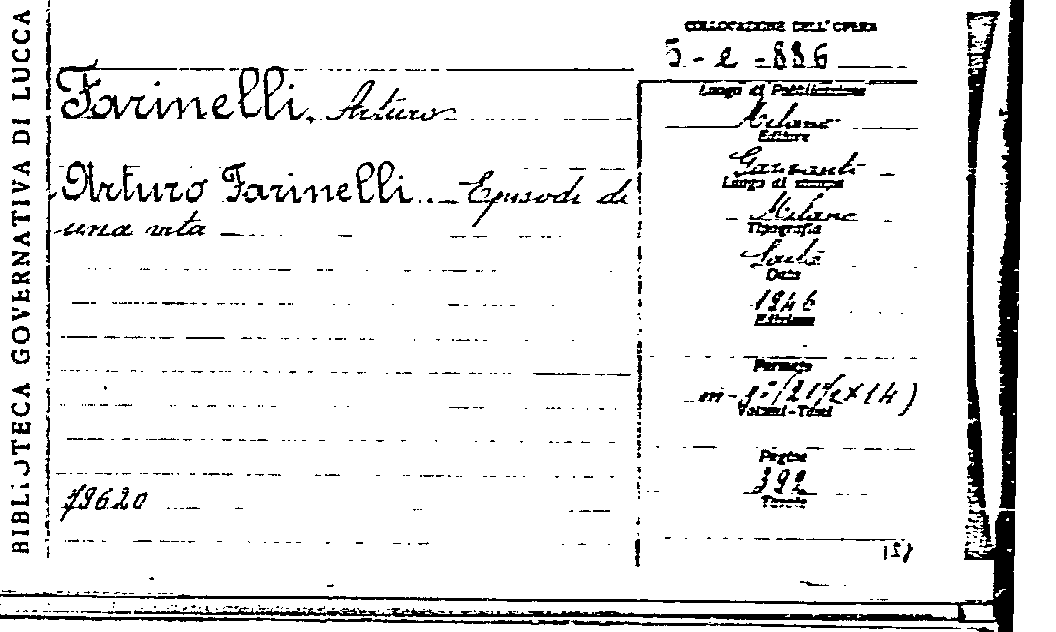 BIBLIOTECA GOVERNATIVA DI LUCCA
COLLOCAZIONE DELL'OPERA
5 - e - 886
Farinelli, Arturo
Arturo Farinelli. - Episodi di
una vita
79620
Luogo di Pubblicazione
Milano
Editore
Garzanti
Luogo di stampa
Milano
Tipografia
Data
1946
Edizione
Formato
Volumi-Tomi
Pagine
392
Tavole